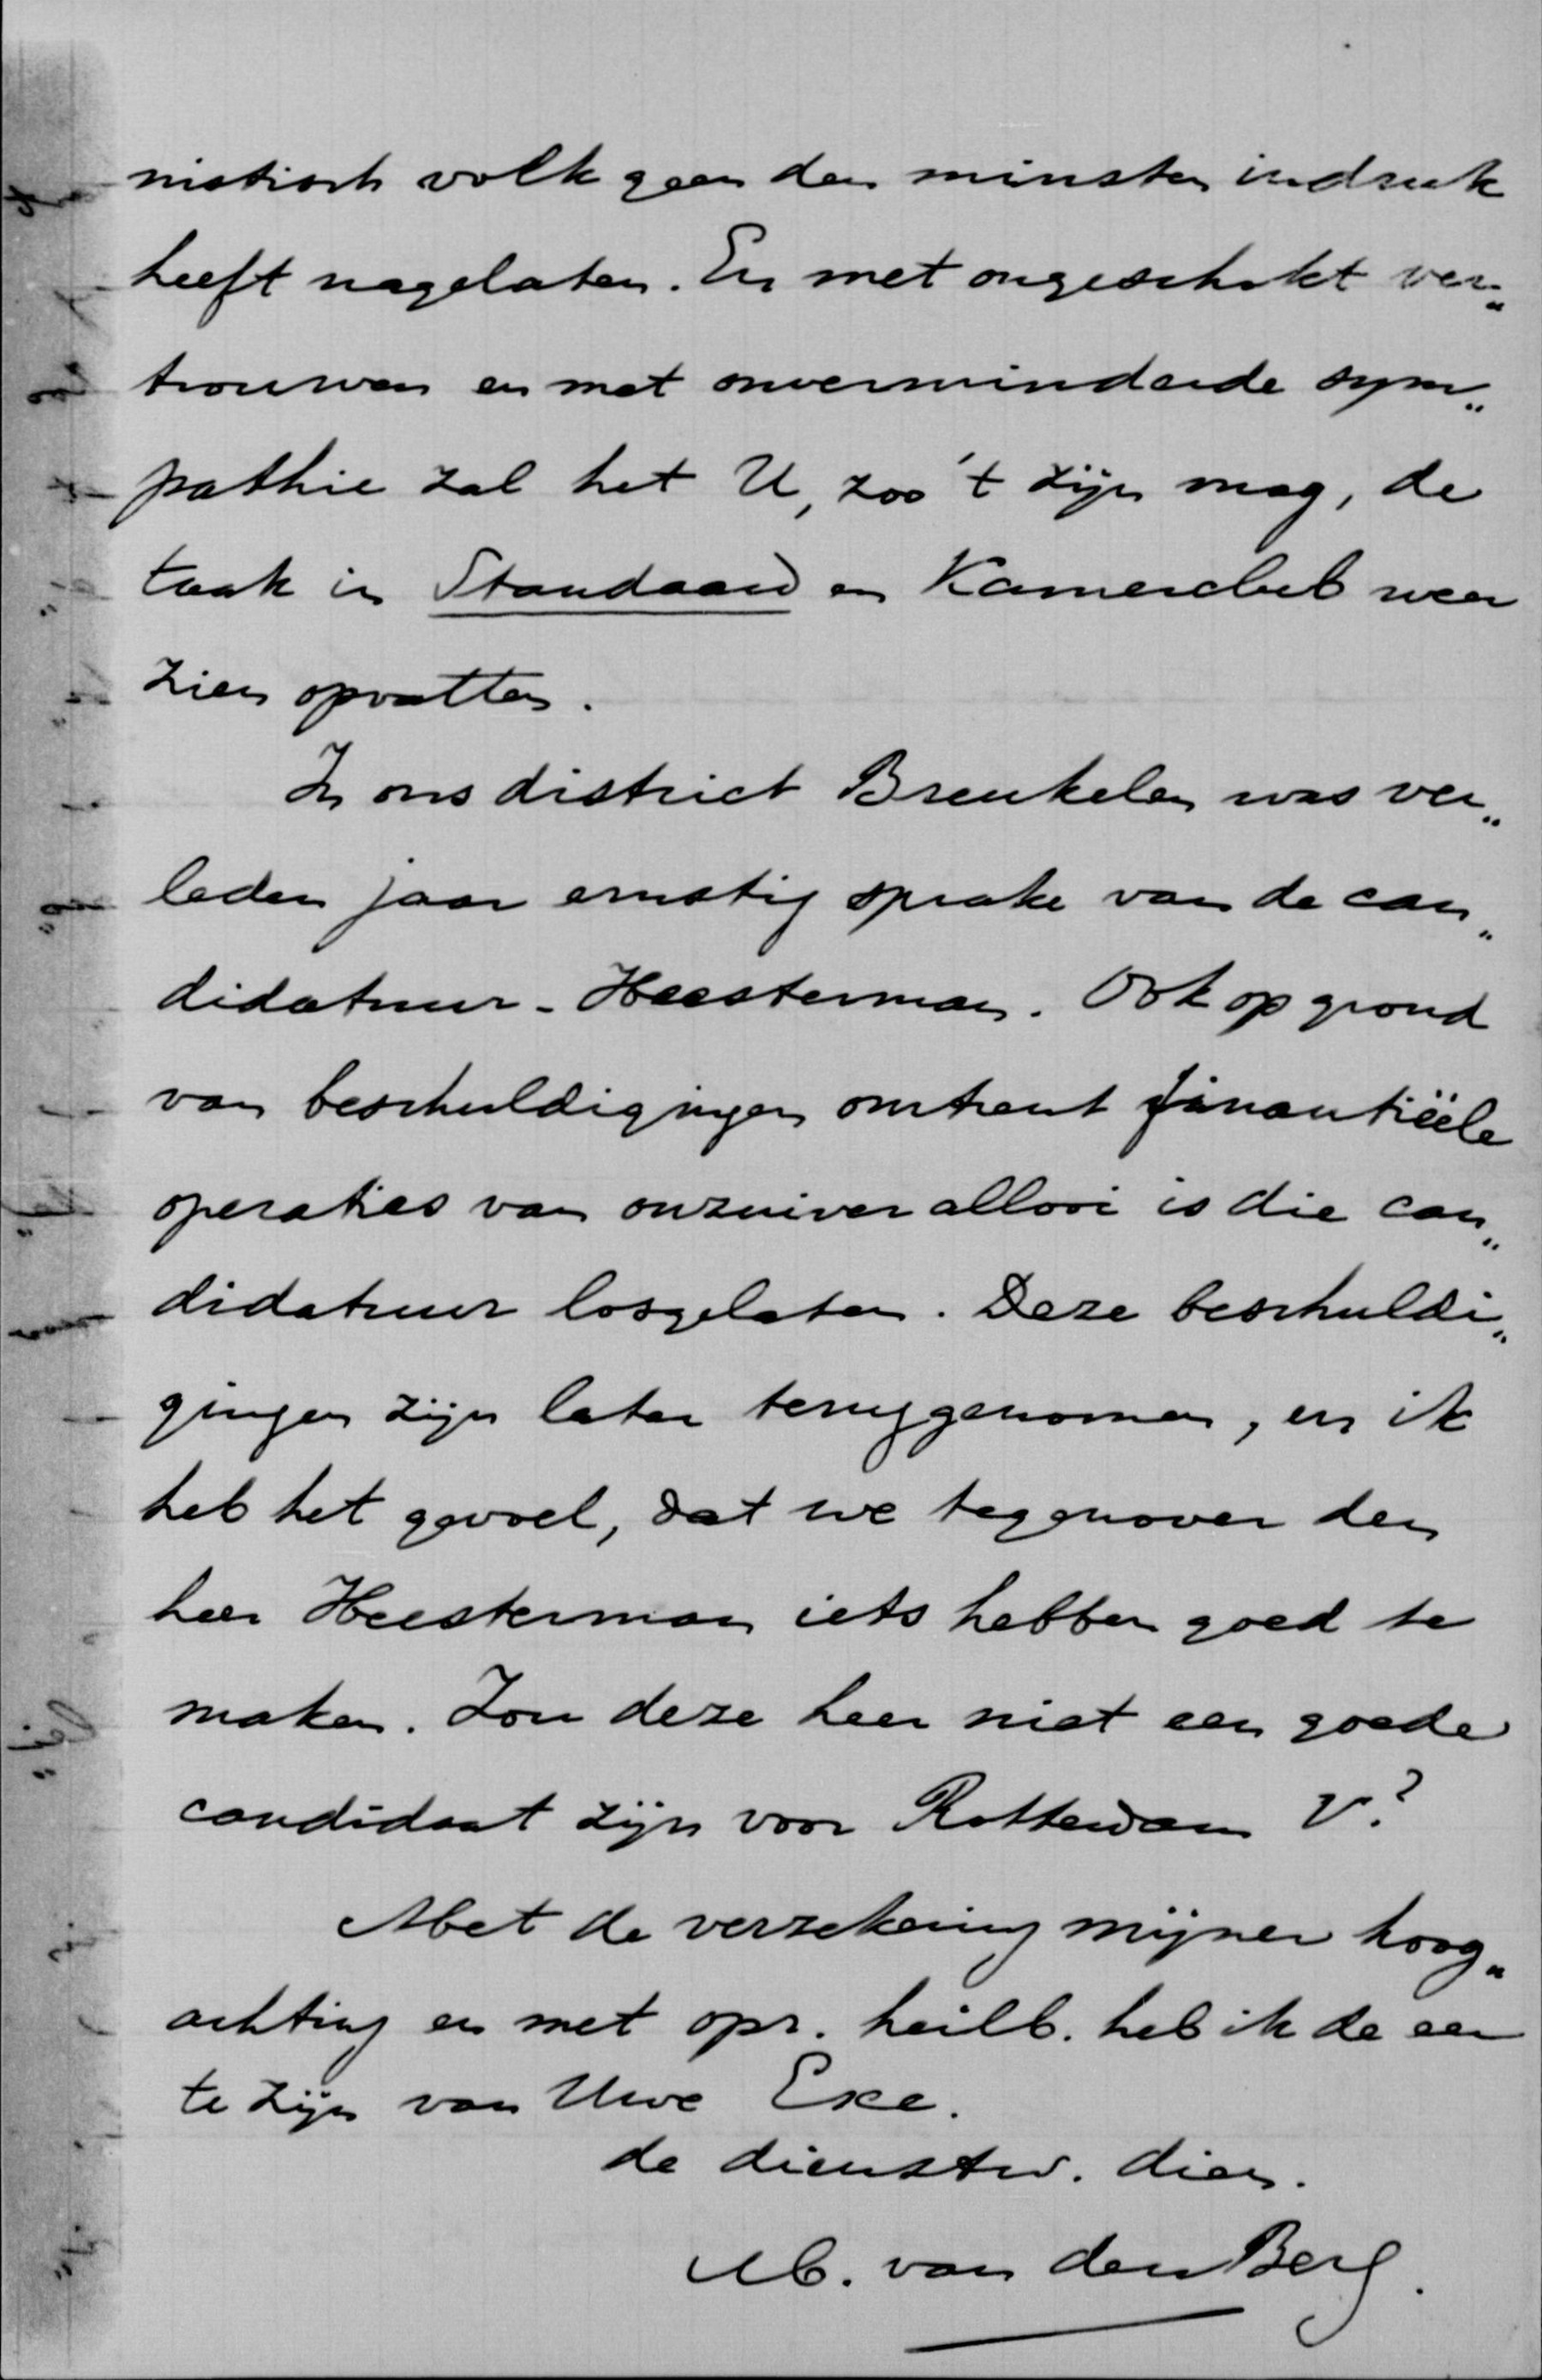 nistisch volk geen den minsten indruk
heeft nagelaten. En met ongeschokt ver„
trouwen en met onverminderde sym„
pathie zal het U, zoo 't zijn mag, de
taak in Standaard en Kamerclub weer
zien opvatten.
In ons district Breukelen was ver„
leden jaar ernstig sprake van de can„
didatuur-Heesterman. Ook op grond
van beschuldigingen omtrent finantiëele
operaties van onzuiver allooi is die can„
didatuur losgelaten. Deze beschuldi„
gingen zijn later teruggenomen, en ik
heb het gevoel, dat we tegenover den
heer Heesterman iets hebben goed te
maken. Zou deze heer niet een goede
candidaat zijn voor Rotterdam V?
Met de verzekering mijner hoog„
achting en met opr. heilb. heb ik de eer
te zijn van Uwe Exc.
de dienstw. dien.
M. van den Berg.